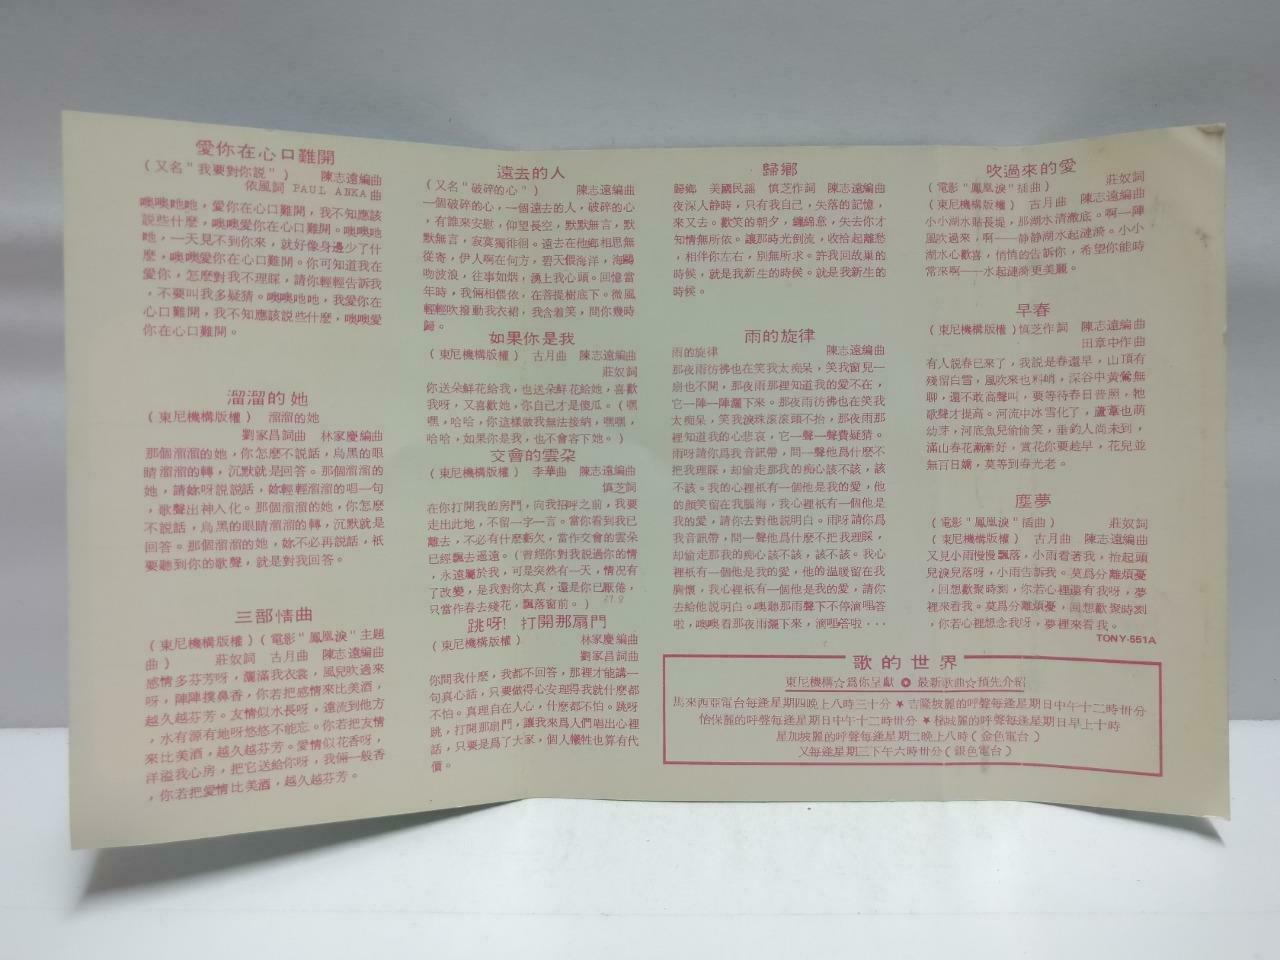 愛你在心口難開
(又名"我要對你説") 陳志遠編曲
依風詞 PAUL ANKA曲
噢噢吔吔，愛你在心口難開，我不知應該
説些什麼，噢噢愛你在心口難開。噢噢吔
吔，一天見不到你來，就好像身邊少了什
麼，噢噢愛你在心口難開。你可知道我在
愛你，怎麼對我不理睬，請你輕輕告訴我
，不要叫我多疑猜。噢噢吔吔，我愛你在
心口難開，我不知應該説些什麼，噢噢愛
你在心口難開。
溜溜的她
(東尼機構版權) 溜溜的她
劉家昌詞曲 林家慶編曲
那個溜溜的她，你怎麼不説話，烏黑的眼
睛溜溜的轉，沉默就是回答。那個溜溜的
她，請妳呀説説話，妳輕輕溜溜的唱一句
，歌聲出神入化。那個溜溜的她，你怎麼
不説話，烏黑的眼睛溜溜的轉，沉默就是
回答。那個溜溜的她，妳不必再説話，祇
要聽到你的歌聲，就是對我回答。
三部情曲
(東尼機構版權)(電影"鳳凰淚"主題
曲) 莊奴詞 古月曲 陳志遠編曲
感情多芬芳呀，灑滿我衣裳，風兒吹過來
呀，陣陣撲鼻香，你若把感情來比美酒，
越久越芬芳。友情似水長呀，遠流到他方
，水有源有地呀悠悠不能忘。你若把友情
來比美酒，越久越芬芳。愛情似花香呀，
洋溢我心房，把它送給你呀，我倆一般香
，你若把愛情比美酒，越久越芬芳。
遠去的人
(又名"破碎的心") 陳志遠編曲
一個破碎的心，一個遠去的人，破碎的心
，有誰來安慰，仰望長空，默默無言，默
默無言，寂寞獨徘徊。遠去在他鄉相思無
從寄，伊人啊在何方，碧天偎海洋，海鷗
吻波浪，往事如烟，湧上我心頭。回憶當
年時，我倆相偎依，在菩提樹底下。微風
輕輕吹撥動我衣裙，我含着笑，問你幾時
歸。
如果你是我
(東尼機構版權) 古月曲 陳志遠編曲
莊奴詞
你送朵鮮花給我，也送朵鮮花給她，喜歡
我呀，又喜歡她，你自己才是傻瓜。(嘿
嘿，哈哈，你這樣做我無法接納，嘿嘿，
哈哈，如果你是我，也不會容下她。)
交會的雲朵
(東尼機構版權) 李華曲 陳志遠編曲
慎芝詞
在你打開我的房門，向我招呼之前，我要
走出此地，不留一字一言。當你看到我已
離去，不必有什麼虧欠，當作交會的雲朵
已經飄去遙遠。(曾經你對我説過你的情
，永遠屬於我，可是突然有一天，情况有
了改變，是我對你太真，還是你已厭倦，
只當作春去殘花，飄落窗前。)
跳呀！打開那扇門
(東尼機構版權) 林家慶編曲
劉家昌詞曲
你問我什麽，我都不回答，那裡才能講一
句真心話，只要做得心安理得我就什麼都
不怕。真理自在人心，什麼都不怕。跳呀
跳，打開那扇門，讓我來爲人們唱出心裡
話，只要是爲了大家，個人犧牲也算有代
價。
歸鄉
歸鄉 美國民謠 慎芝作詞 陳志遠編曲
夜深人静時，只有我自己，失落的記憶，
來又去。歡笑的朝夕，纏綿意，失去你才
知情無所依。讓那時光倒流，收拾起離愁
，相伴你左右，別無所求。許我回故巢的
時候，就是我新生的時候。就是我新生的
時候。
雨的旋律
雨的旋律 陳志遠編曲
那夜雨彷彿也在笑我太痴呆，笑我窗兒一
扇也不開，那夜雨那裡知道我的愛不在，
它一陣一陣灑下來。那夜雨彷彿也在笑我
太痴呆，笑我淚珠滾滾頭不抬，那夜雨那
裡知道我的心悲哀，它一聲一聲費疑猜。
雨呀請你爲我音訊帶，問一聲他爲什麼不
把我理睬，却偷走那我的痴心該不該，該
不該。我的心裡祇有一個他是我的愛，他
的顔笑留在我腦海，我心裡祇有一個他是
我的愛，請你去對他説明白。雨呀請你爲
我音訊帶，問一聲他爲什麼不把我理睬，
却偷走那我的痴心該不該，該不該。我心
裡祇有一個他是我的愛，他的温暖留在我
胸懷，我心裡祇有一個他是我的愛，請你
去給他説明白。噢聽那雨聲下不停滴唱答
啦，噢噢看那夜雨灑下來，滴唱答啦···
吹過來的愛
(電影"鳳凰淚"插曲) 莊奴詞
(東尼機構版權) 古月曲 陳志遠編曲
小小湖水貼長堤，那湖水清澈底。啊一陣
風吹過來，啊一一静静湖水起漣漪。小小
湖水心歡喜，悄悄的告訴你，希望你能時
常來啊一一水起漣漪更美麗。
早春
(東尼機構版權)慎芝作詞 陳志遠編曲
田章中作曲
有人説春已來了，我説是春還早，山頂有
殘留白雪，風吹來也料峭，深谷中黄鶯無
聊，還不敢高聲叫，要等待春日普照，牠
歌聲才提高。河流中冰雪化了，蘆葦也萌
幼芽，河底魚兒偷偷笑，垂釣人尚未到，
滿山春花漸漸好，賞花你要趁早，花兒並
無百日嬌，莫等到春光老。
塵夢
(電影"鳳凰淚"插曲) 莊奴詞
(東尼機構版權) 古月曲 陳志遠編曲
又見小雨慢慢飄落，小雨看著我，抬起頭
兒淚兒落呀，小雨告訴我。莫爲分離煩憂
，回想歡聚時刻，你若心裡還有我呀，夢
裡來看我。莫爲分離煩憂，回想歡聚時刻
，你若心裡想念我呀，夢裡來看我。
TONY-551A
歌的世界
東尼機構☆爲你呈獻 ✪ 最新歌曲☆預先介紹
馬來西亞電台每逢星期四晚上八時三十分 ★ 吉隆披麗的呼聲每逢星期日中午十二時卅分
怡保麗的呼聲每逢星期日中午十二時卅分 ★ 檳城麗的呼聲每逢星期日早上十時
星加坡麗的呼聲每逢星期二晚上八時(金色電台)
又每逢星期三下午六時卅分(銀色電台)